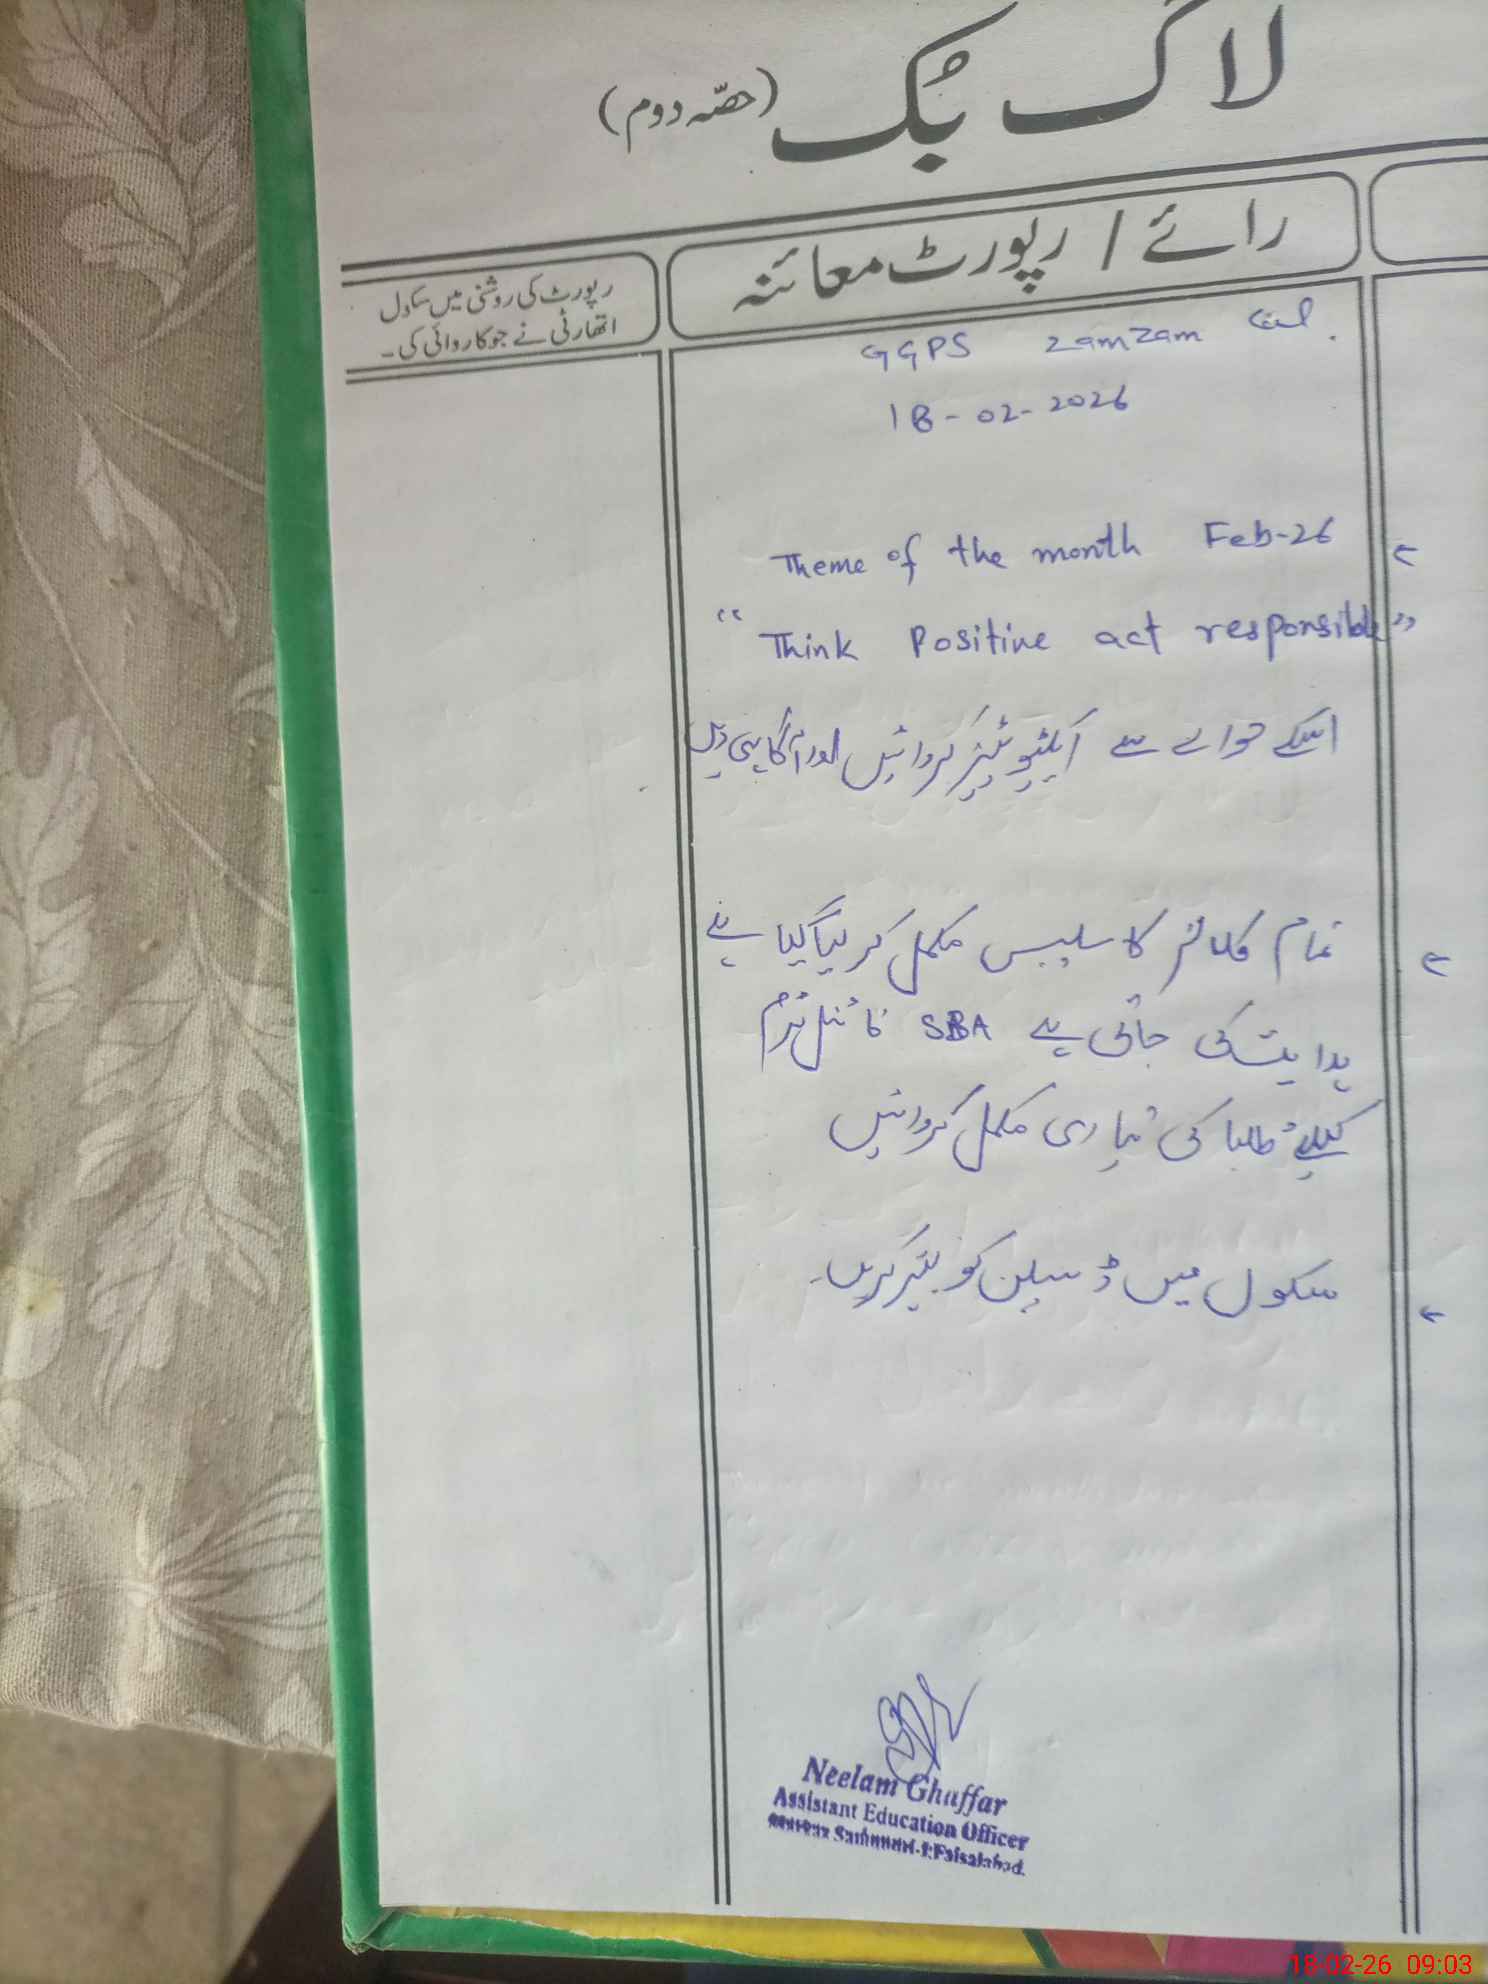 لاگ بُک (حصّہ دوم)
رائے / رپورٹ معائنہ
رپورٹ کی روشنی میں سکول
اتھارٹی نے جو کاروائی کی۔
GGPS zamzam
18-02-2026
Theme of the month Feb-26
“Think Positive act responsible”
اسکے حوالے سے ایکٹیوٹیز کروائیں اور آگاہی دیں
تمام کلاسز کا سلیبس مکمل کر لیا گیا ہے
ہدایت کی جاتی ہے SBA فائنل ٹرم
کیلئے طلبا کی تیاری مکمل کروائیں
سکول میں ڈسپلن کو بہتر کریں۔
Neelam Ghaffar
Assistant Education Officer
Faisalabad.
18-02-26 09:03